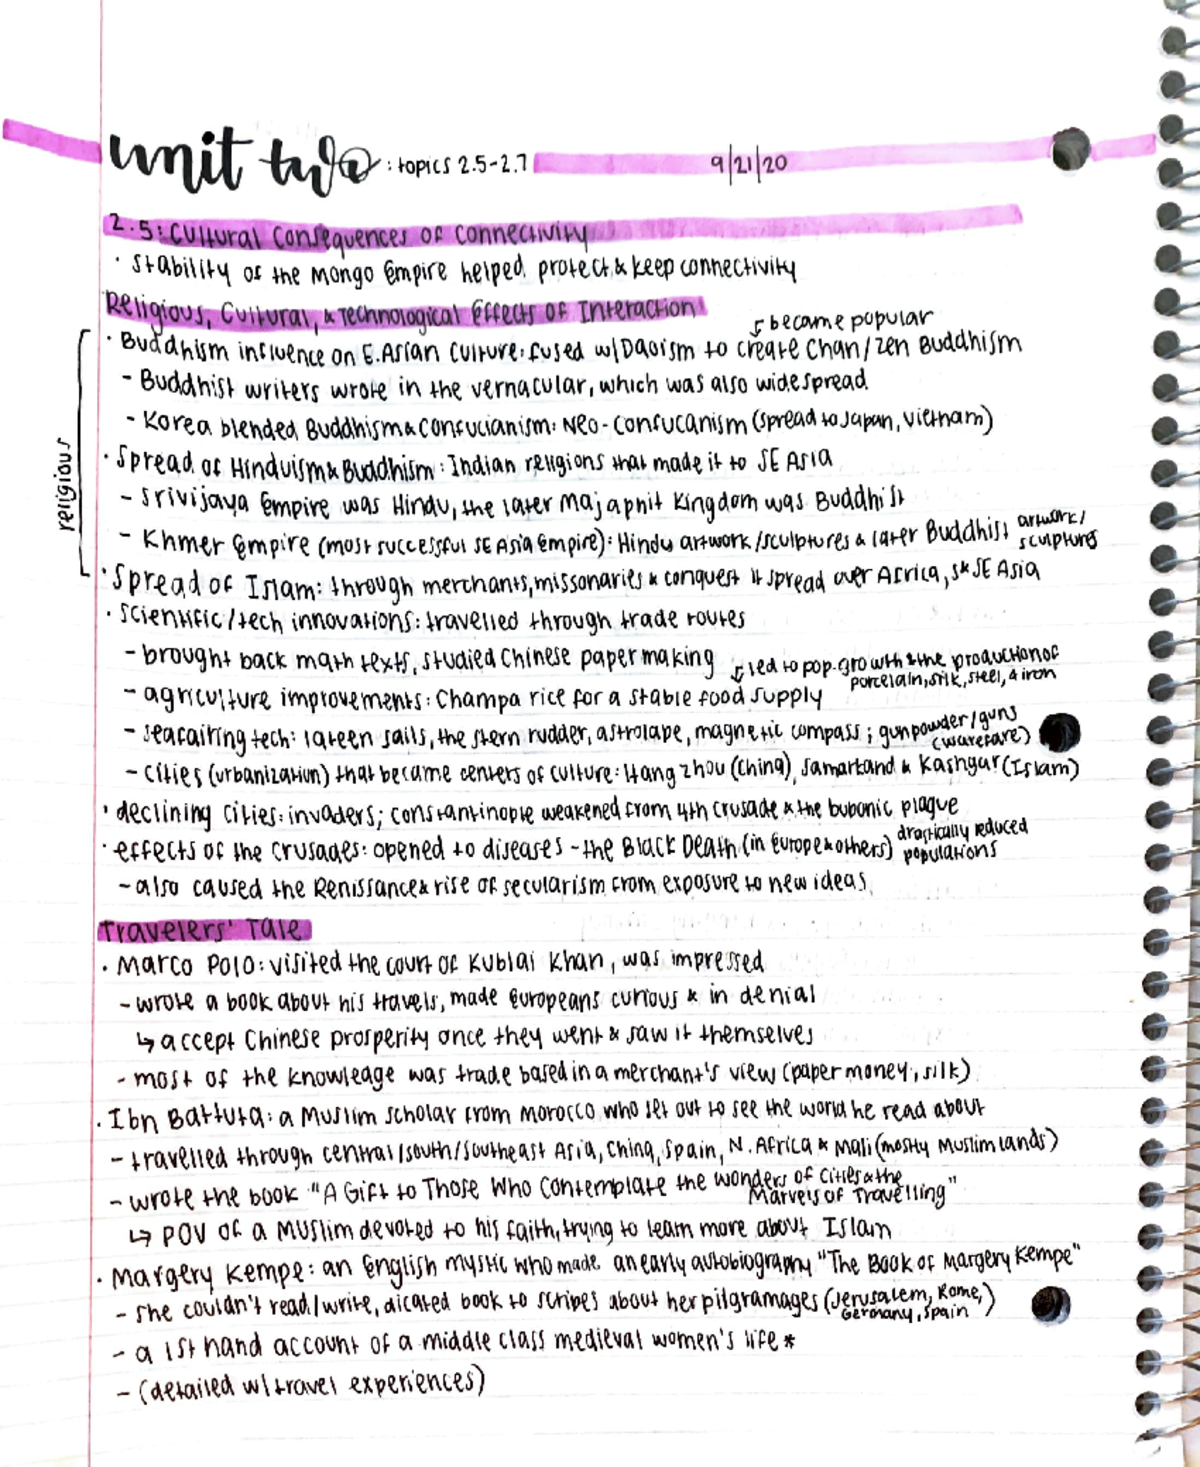 unit two: topics 2.5-2.7 9/21/20
2.5: Cultural Consequences of Connectivity
· Stability of the Mongo Empire helped protect & keep connectivity
Religious, Cultural, & Technological Effects of Interaction
↓ became popular
· Buddhism influence on E. Asian culture: fused w/ Daoism to create Chan/Zen Buddhism
- Buddhist writers wrote in the vernacular, which was also widespread
- Korea blended Buddhism & Confucianism: Neo-Confucanism (spread to Japan, Vietnam)
religious
· Spread of Hinduism & Buddhism: Indian religions that made it to SE Asia
- Srivijaya Empire was Hindu, the later Majapnit Kingdom was Buddhist
- Khmer Empire (most successful SE Asia Empire): Hindu artwork/sculptures & later Buddhist artwork/sculptures
· Spread of Islam: through merchants, missonaries & conquest it spread over Africa, S & SE Asia
· scientific/tech innovations: travelled through trade routes
- brought back math texts, studied Chinese papermaking
↓ led to pop. growth & the production of porcelain, silk, steel, & iron
- agriculture improvements: Champa rice for a stable food supply
- seafairing tech: lateen sails, the stern rudder, astrolape, magnetic compass; gunpowder/guns (warefare)
- cities (urbanization) that became centers of culture: Hangzhou (China), Samarkand & Kashgar (Islam)
· declining cities: invaders; constantinople weakened from 4th crusade & the bubonic plague
· effects of the crusades: opened to diseases - the Black Death (in Europe & others) drastically reduced populations
- also caused the Renissance & rise of secularism from exposure to new ideas
Travelers' Tale
· Marco Polo: visited the court of Kublai Khan, was impressed
- wrote a book about his travels, made Europeans curious & in denial
↳ accept Chinese prosperity once they went & saw it themselves
- most of the knowledge was trade based in a merchant's view (paper money, silk)
· Ibn Battuta: a Muslim scholar from Morocco who set out to see the world he read about
- travelled through central/south/southeast Asia, China, Spain, N. Africa & Mali (mostly Muslim lands)
- wrote the book "A Gift to Those Who Contemplate the wonders of Cities & the Marvels of Travelling"
↳ POV of a Muslim devoted to his faith, trying to learn more about Islam
· Margery Kempe: an English mystic who made an early autobiography "The Book of Margery Kempe"
- she couldn't read/write, dicated book to scribes about her pilgramages (Jerusalem, Rome, Germany, Spain)
- a 1st hand account of a middle class medieval women's life *
- (detailed w/ travel experiences)